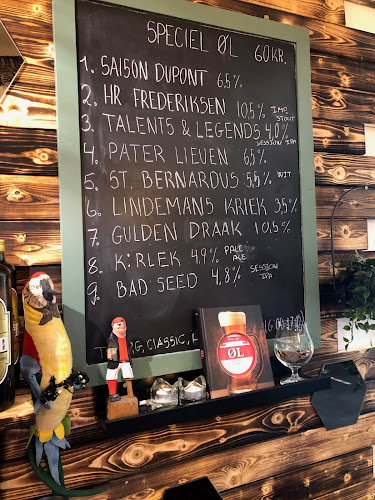 SPECIEL ØL 60 KR.
1. SAISON DUPONT 6,5%
2. HR FREDERIKSEN 10,5% IMP. STOUT
3. TALENTS & LEGENDS 4,0% SESSION IPA
4. PATER LIEVEN 6,5%
5. ST. BERNARDUS 5,5% WIT
6. LINDEMANS KRIEK 3,5%
7. GULDEN DRAAK 10,5%
8. K:RLEK 4,9% PALE ALE
9. BAD SEED 4,8% SESSION IPA
CLASSIC,
ØL